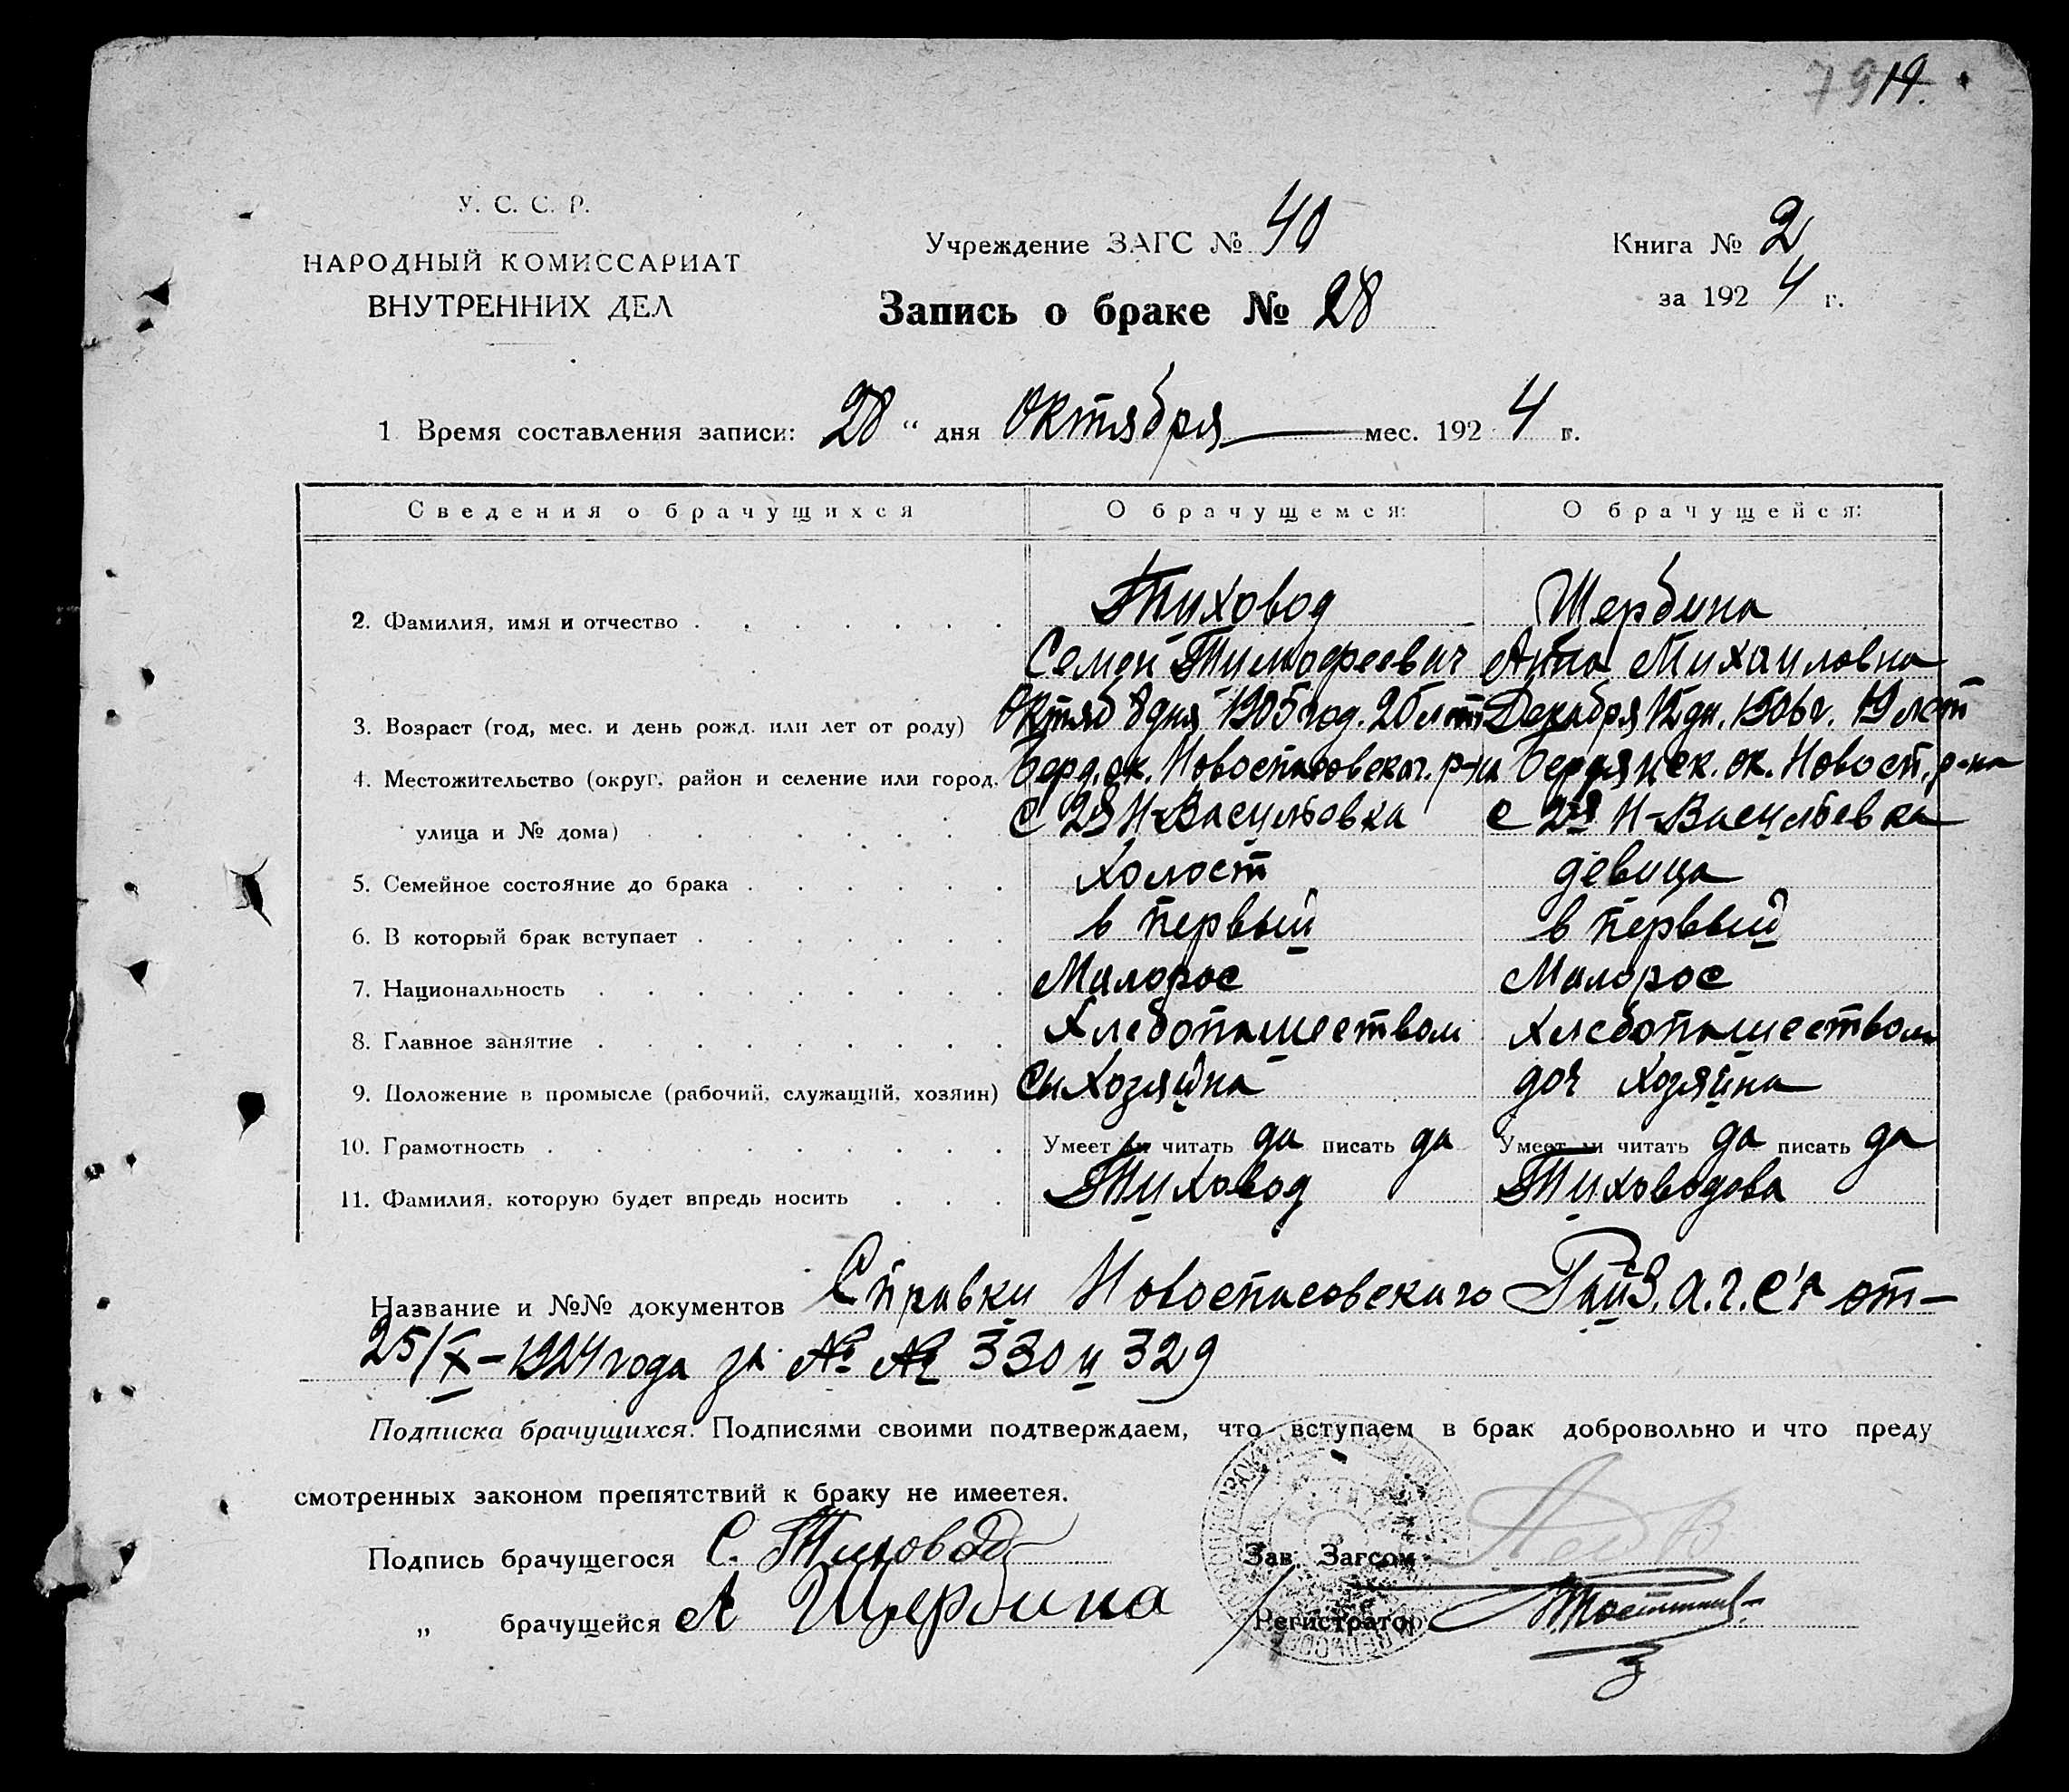 79 14.
У. С. С. Р.
НАРОДНЫЙ КОМИССАРИАТ
ВНУТРЕННИХ ДЕЛ
Учреждение ЗАГС № 40
Запись о браке № 28
Книга № 2
за 1924 г.
1 Время составления записи: 28 “ дня Октября мес. 1924 г.
Сведения о брачущихся О брачущемся: О брачущейся:
2. Фамилия, имя и отчество Тиховод Щербина
Семен Тимофеевич Анна Михаиловна
3. Возраст (год, мес. и день рожд. или лет от роду) Октяб 8 дня 1905 год. 20 лет Декабря 12 дн. 1906 г. 19 лет
4. Местожительство (округ, район и селение или город, Берд. ок. Новоспасовског. р-на Бердянск. ок. Новосп. р-на
улица и № дома) с 2я Н-Васильовка с 2я Н-Васильевка
5. Семейное состояние до брака холост девица
6. В который брак вступает в первый в первый
7. Национальность Малорос Малорос
8. Главное занятие Хлебопашеством хлебопашеством
9. Положение в промысле (рабочий, служащий, хозяин) Сы Хозяйна доч хозяйна
10. Грамотность Умеет ли читать да писать да Умеет ли читать да писать да
11. Фамилия, которую будет впредь носить Тиховод Тиховодова
Название и №№ документов Справки Новоспасовскаго РайЗ.А.Г.С'а от
25/X–1924 года за № № 330 и 329
Подписка брачущихся. Подписями своими подтверждаем, что вступаем в брак добровольно и что преду
смотренных законом препятствий к браку не имеется.
Подпись брачущегося С. Тиховод
Зав. Загсом
„ брачущейся А Щербина
Регистратор